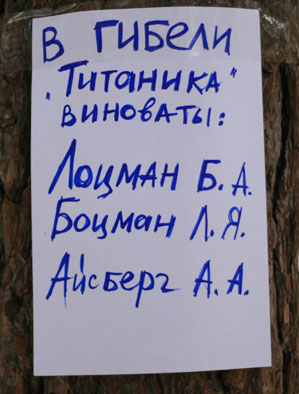 В ГИБЕЛИ
„Титаника"
виноваты:
Лоцман Б. А.
Боцман Л. Я.
Айсберг А. А.